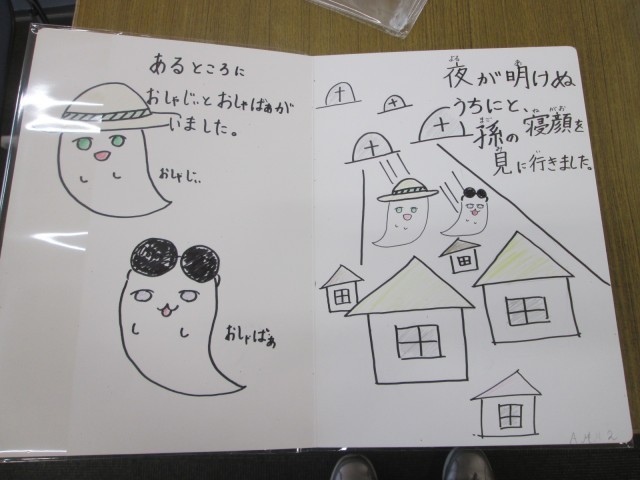 あるところに
おしゃじぃとおしゃばぁが
いました。
おしゃじぃ
おしゃばぁ
よる あ
夜が明けぬ
うちにと、
まご ねがお
孫の寝顔を
み
見に行きました。